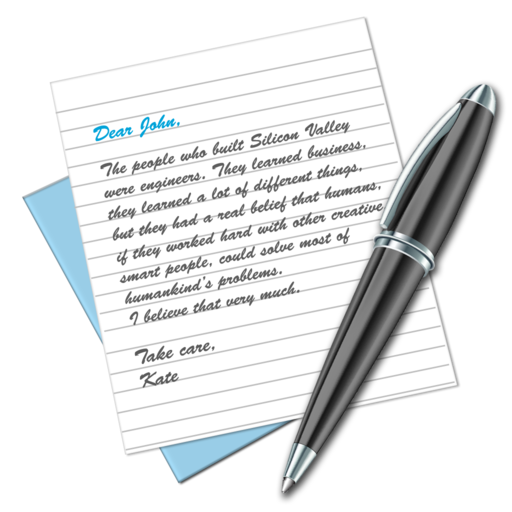 Dear John,
The people who built Silicon Valley
were engineers. They learned business,
they learned a lot of different things,
but they had a real belief that humans,
if they worked hard with other creative
smart people, could solve most of
humankind's problems.
I believe that very much.
Take care,
Kate